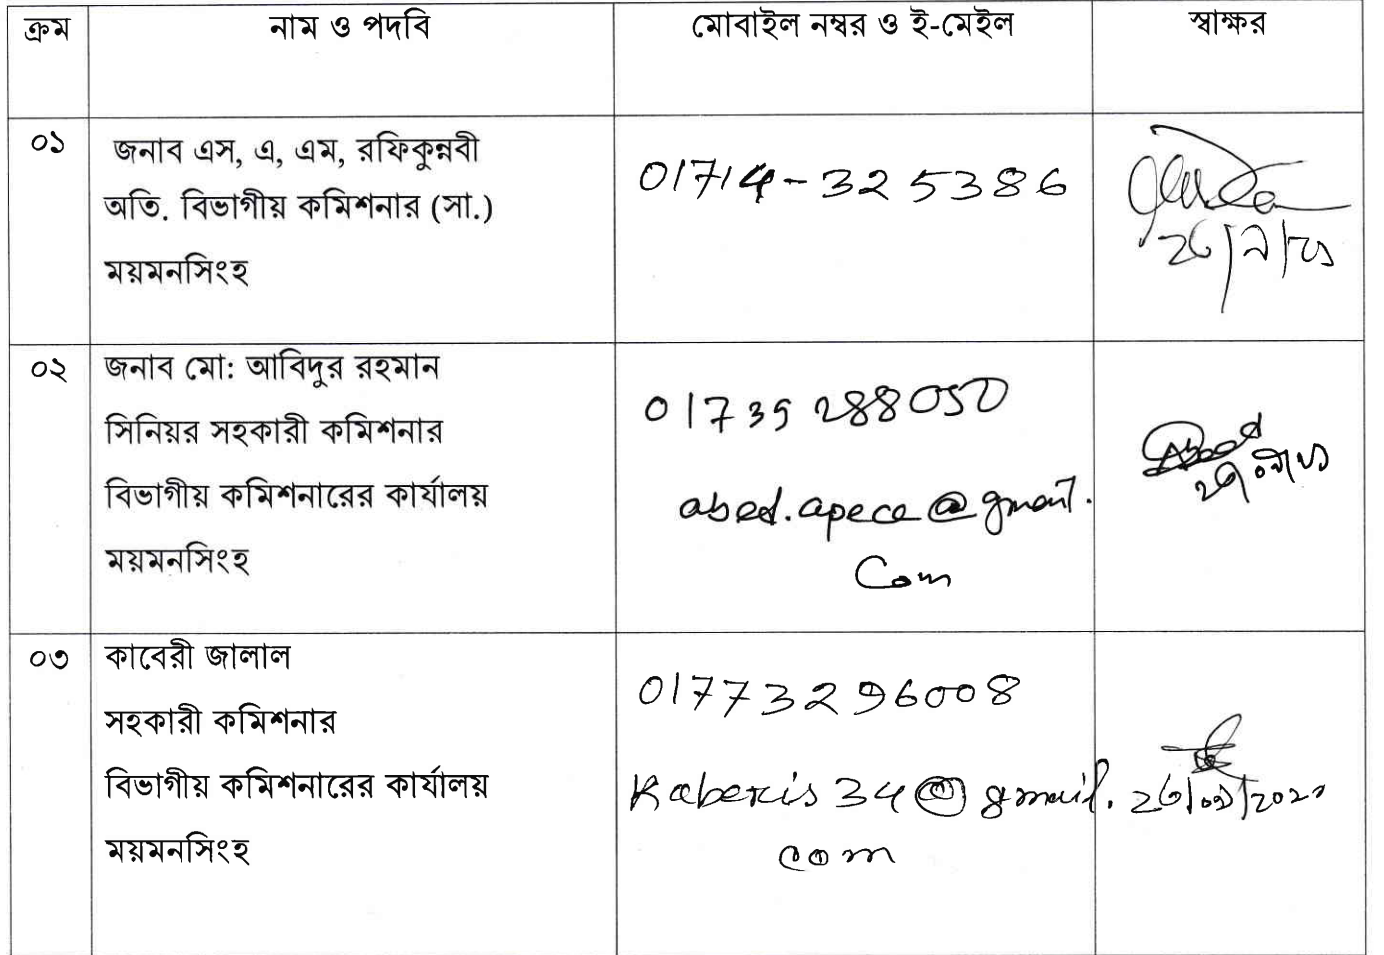 ক্রম নাম ও পদবি মোবাইল নম্বর ও ই-মেইল স্বাক্ষর
০১ জনাব এস, এ, এম, রফিকুন্নবী
অতি. বিভাগীয় কমিশনার (সা.)
ময়মনসিংহ
01714-325386
০২ জনাব মো: আবিদুর রহমান
সিনিয়র সহকারী কমিশনার
বিভাগীয় কমিশনারের কার্যালয়
ময়মনসিংহ
01739288050
abed.apece@gmail.
com
০৩ কাবেরী জালাল
সহকারী কমিশনার
বিভাগীয় কমিশনারের কার্যালয়
ময়মনসিংহ
01773296008
Kaberis34@gmail.
com